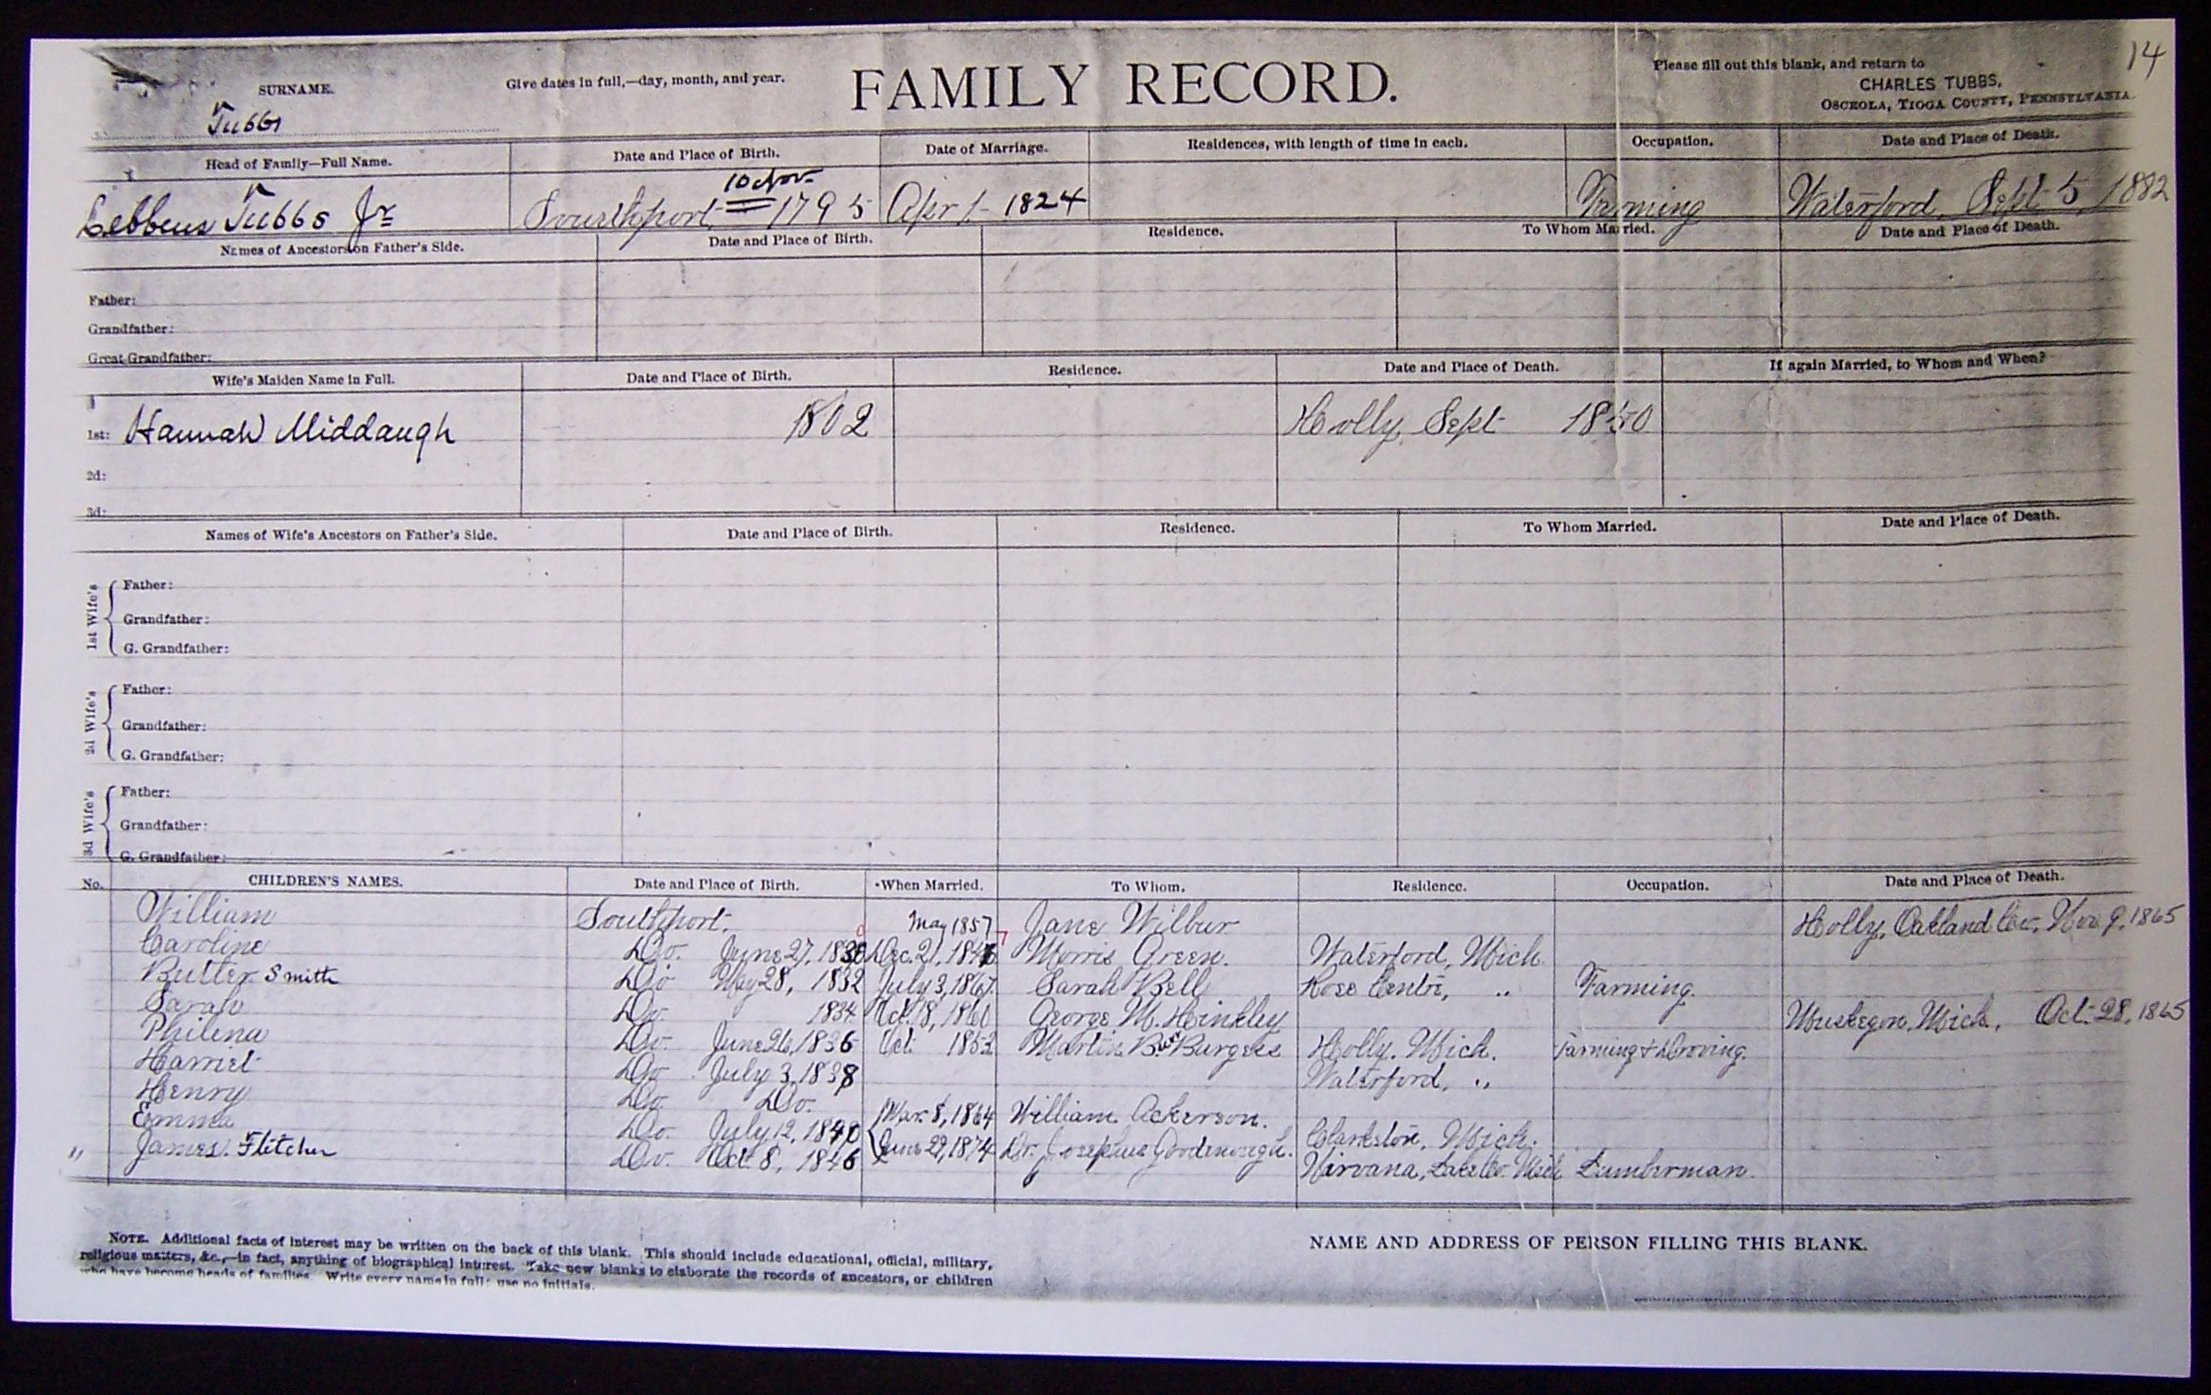 14
SURNAME. Give dates in full,—day, month, and year. FAMILY RECORD. Please fill out this blank, and return to
CHARLES TUBBS,
OSCEOLA, TIOGA COUNTY, PENNSYLVANIA
Tubbs
Head of Family—Full Name. Date and Place of Birth. Date of Marriage. Residences, with length of time in each. Occupation. Date and Place of Death.
10 Nov.
Lebbeus Tubbs Jr Southport 1795 Apr 1 1824 Farming Waterford, Sept 5, 1882
Names of Ancestors on Father's Side. Date and Place of Birth. Residence. To Whom Married. Date and Place of Death.
Father:
Grandfather:
Great Grandfather:
Wife's Maiden Name in Full. Date and Place of Birth. Residence. Date and Place of Death. If again Married, to Whom and When?
1st: Hannah Middaugh 1802 Holly, Sept 1850
2d:
3d:
Names of Wife's Ancestors on Father's Side. Date and Place of Birth. Residence. To Whom Married. Date and Place of Death.
1st Wife's
Father:
Grandfather:
G. Grandfather:
2d Wife's
Father:
Grandfather:
G. Grandfather:
3d Wife's
Father:
Grandfather:
G. Grandfather:
No. CHILDREN'S NAMES. Date and Place of Birth. When Married. To Whom. Residence. Occupation. Date and Place of Death.
William Southport. May 1857 Jane Wilbur Holly, Oakland Co., Nov 9, 1865
Caroline Do. June 27, 1830 Dec. 21, Morris Green. Waterford, Mich.
Butler Smith Do May 28, 1832 July 3, 1867. Sarah Bell Rose Centre, „ Farming.
Sarah Do 1834 Oct. 18, 1860 George M. Hinkley Muskegon, Mich., Oct. 28, 1865
Philena Do. June 26, 1836 Oct. 1853 Martin Burgess Holly. Mich. Farming & Droving.
Harriet Do July 3, 1838 Waterford, „
Henry Do. Do.
Emma Do. July 12, 1840 Mar. 8, 1864 William Ackerson.
June 29, 1874 Dr. Josephus Goodenough. Clarkston, Mich.
„ James Fletcher Do. Oct. 8, 1846 Nirvana, Lake Co. Mich Lumberman.
NOTE. Additional facts of interest may be written on the back of this blank. This should include educational, official, military,
religious matters, &c.,—in fact, anything of biographical interest. Take new blanks to elaborate the records of ancestors, or children
who have become heads of families. Write every name in full; use no initials.
NAME AND ADDRESS OF PERSON FILLING THIS BLANK.